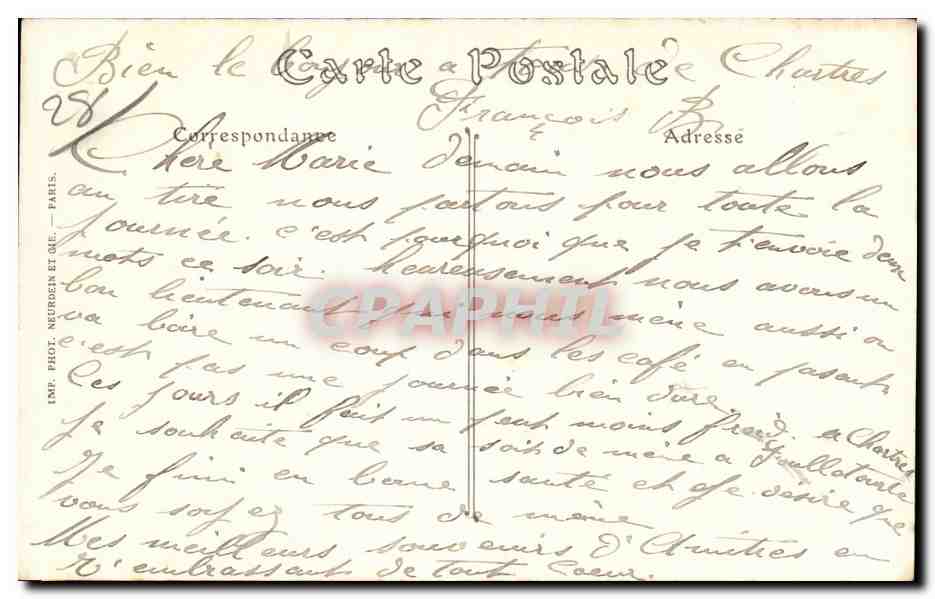 Carte Postale
Bien le bonjour a de Chartres
François B
28/
Correspondance
Adresse
Chere Marie demain nous allons
au tire nous partons pour toute la
journée. c'est pourquoi que je t'envoie deux
mots ce soir. heureusement nous avons un
bon lieutenant qui nous mène aussi on
va boire un coup dans les café en passant
c'est pas une journée bien dure.
Ces jours il fait un peut moins froid. a Chartres
je souhaite que sa soit de même a Foulletourte
Je fini en bonne santé et je désire que
vous soyez tous de même
Mes meilleurs souvenirs d'Amitiés en
t'embrassant de tout Coeur.
IMP. PHOT. NEURDEIN ET CIE. — PARIS.
CPAPHIL